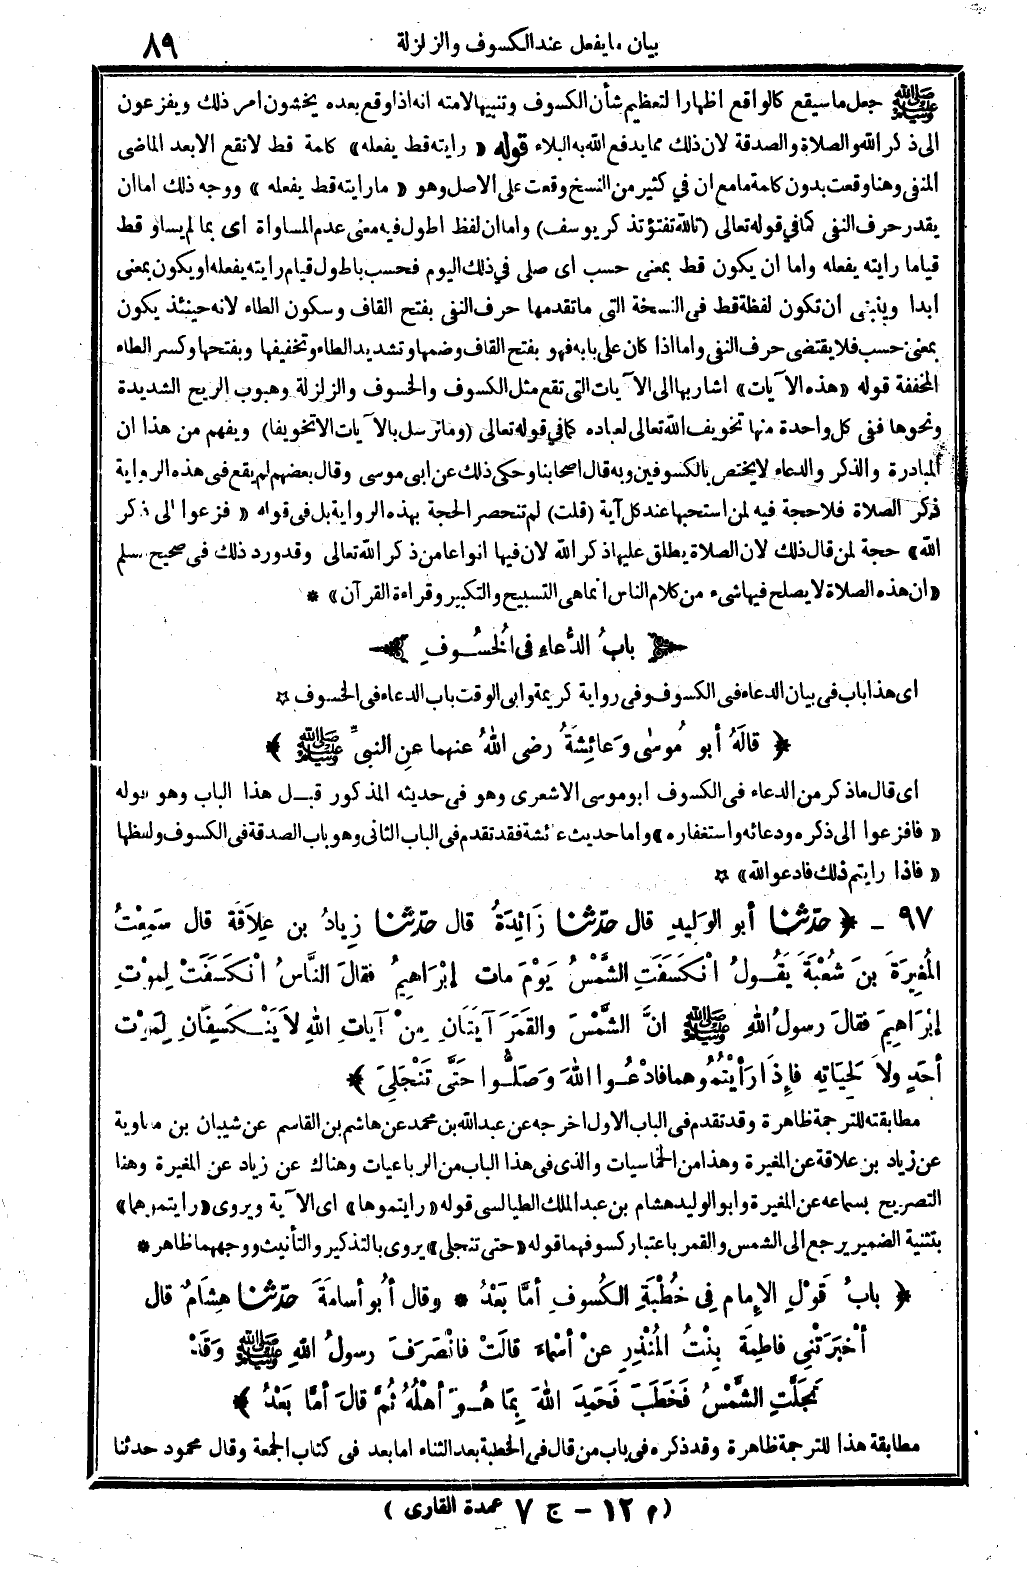 بيان ما يفعل عند الكسوف والزلزلة ٨٩
ﷺ جعل ما سيقع كالواقع اظهارا لتعظيم شأن الكسوف وتنبيها لامته انه اذا وقع بعده يخشون امر ذلك ويفزعون
الى ذكر الله والصلاة والصدقة لان ذلك مما يدفع الله به البلاء قوله « رايته قط يفعله » كلمة قط لا تقع الا بعد الماضى
المنفى وهنا وقعت بدون كلمة ما مع ان في كثير من النسخ وقعت على الاصل وهو « ما رايته قط يفعله » ووجه ذلك اما ان
يقدر حرف النفى كما في قوله تعالى (تالله تفتؤ تذكر يوسف) واما ان لفظ اطول فيه معنى عدم المساواة اى بما لم يساو قط
قياما رايته يفعله واما ان يكون قط بمعنى حسب اى صلى في ذلك اليوم فحسب باطول قيام رايته يفعله او يكون بمعنى
ابدا وينبغى ان تكون لفظة قط فى النسخة التى ما تقدمها حرف النفى بفتح القاف وسكون الطاء لانه حينئذ يكون
بمعنى حسب فلا يقتضى حرف النفى واما اذا كان على بابه فهو بفتح القاف وضمها وتشديد الطاء وتخفيفها وبفتحها وكسر الطاء
المخففة قوله «هذه الآيات» اشار بها الى الآيات التى تقع مثل الكسوف والخسوف والزلزلة وهبوب الريح الشديدة
ونحوها ففى كل واحدة منها تخويف الله تعالى لعباده كما في قوله تعالى (وما نرسل بالآيات الا تخويفا) ويفهم من هذا ان
المبادرة والذكر والدعاء لا يختص بالكسوفين وبه قال اصحابنا وحكى ذلك عن ابى موسى وقال بعضهم لم يقع فى هذه الرواية
ذكر الصلاة فلا حجة فيه لمن استحبها عند كل آية (قلت) لم تنحصر الحجة بهذه الرواية بل فى قوله « فزعوا الى ذكر
الله» حجة لمن قال ذلك لان الصلاة يطلق عليها ذكر الله لان فيها انواعا من ذكر الله تعالى وقد ورد ذلك فى صحيح مسلم
«ان هذه الصلاة لا يصلح فيها شىء من كلام الناس انما هى التسبيح والتكبير وقراءة القرآن» *
بابُ الدُّعاءِ فى الْخُسُوفِ
اى هذا باب فى بيان الدعاء فى الكسوف وفى رواية كريمة وابى الوقت باب الدعاء فى الخسوف ☆
﴿ قالَهُ أبو مُوسٰى وعَائِشَةُ رضى اللهُ عنهما عنِ النبىِّ ﷺ ﴾
اى قال ما ذكر من الدعاء فى الكسوف ابو موسى الاشعرى وهو فى حديثه المذكور قبل هذا الباب وهو قوله
« فافزعوا الى ذكره ودعائه واستغفاره » واما حديث عائشة فقد تقدم فى الباب الثانى وهو باب الصدقة فى الكسوف ولفظها
« فاذا رايتم ذلك فادعوا الله» ☆
٩٧ ـ ﴿ حدّثنا أبو الوَلِيدِ قال حدّثنا زَائِدَةُ قال حدّثنا زِيادُ بن عِلاَقَةَ قال سَمِعْتُ
المُغِيرَةَ بنَ شُعْبَةَ يَقُولُ انْكَسَفَتِ الشَّمْسُ يَوْمَ مات إبْرَاهِيمُ فقالَ النَّاسُ انْكَسَفَتْ لِموْتِ
إبْرَاهِيمَ فقالَ رسولُ اللهِ ﷺ انَّ الشَّمْسَ والقَمَرَ آيَتَانِ مِنْ آياتِ اللهِ لاَ يَنْكَسِفَانِ لِمَوْتِ
أحَدٍ ولاَ لحَيَاتِهِ فإذَا رَأيْتُمُوهما فادْعُوا اللهَ وَصَلُّوا حَتَّى تَنْجَلِيَ ﴾
مطابقته للترجمة ظاهرة وقد تقدم فى الباب الاول اخرجه عن عبد الله بن محمد عن هاشم بن القاسم عن شيبان بن معاوية
عن زياد بن علاقة عن المغيرة وهذا من الخماسيات والذى فى هذا الباب من الرباعيات وهناك عن زياد عن المغيرة وهنا
التصريح بسماعه عن المغيرة وابو الوليد هشام بن عبد الملك الطيالسى قوله «رايتموها» اى الآية ويروى «رايتموهما»
بتثنية الضمير يرجع الى الشمس والقمر باعتبار كسوفهما قوله «حتى تنجلى» يروى بالتذكير والتأنيث ووجههما ظاهر *
﴿ بابُ قَوْلِ الإِمام فِى خُطْبَةِ الكُسوفِ أمَّا بَعْدُ * وقال أبُو أُسامَةَ حدّثنا هِشَامٌ قال
أخْبَرَتْنِي فاطِمَةُ بِنْتُ المُنْذِرِ عنْ أسْمَاءَ قالَتْ فانْصَرَفَ رسولُ اللهِ ﷺ وَقَدْ
تَجَلَّتِ الشَّمْسُ فَخَطَبَ فَحَمِدَ اللهَ بِمَا هُوَ أهْلُهُ ثُمَّ قالَ أمَّا بَعْدُ ﴾
مطابقة هذا للترجمة ظاهرة وقد ذكره فى باب من قال فى الخطبة بعد الثناء اما بعد فى كتاب الجمعة وقال محمود حدثنا
(م ١٢ ـ ج ٧ عمدة القارى)